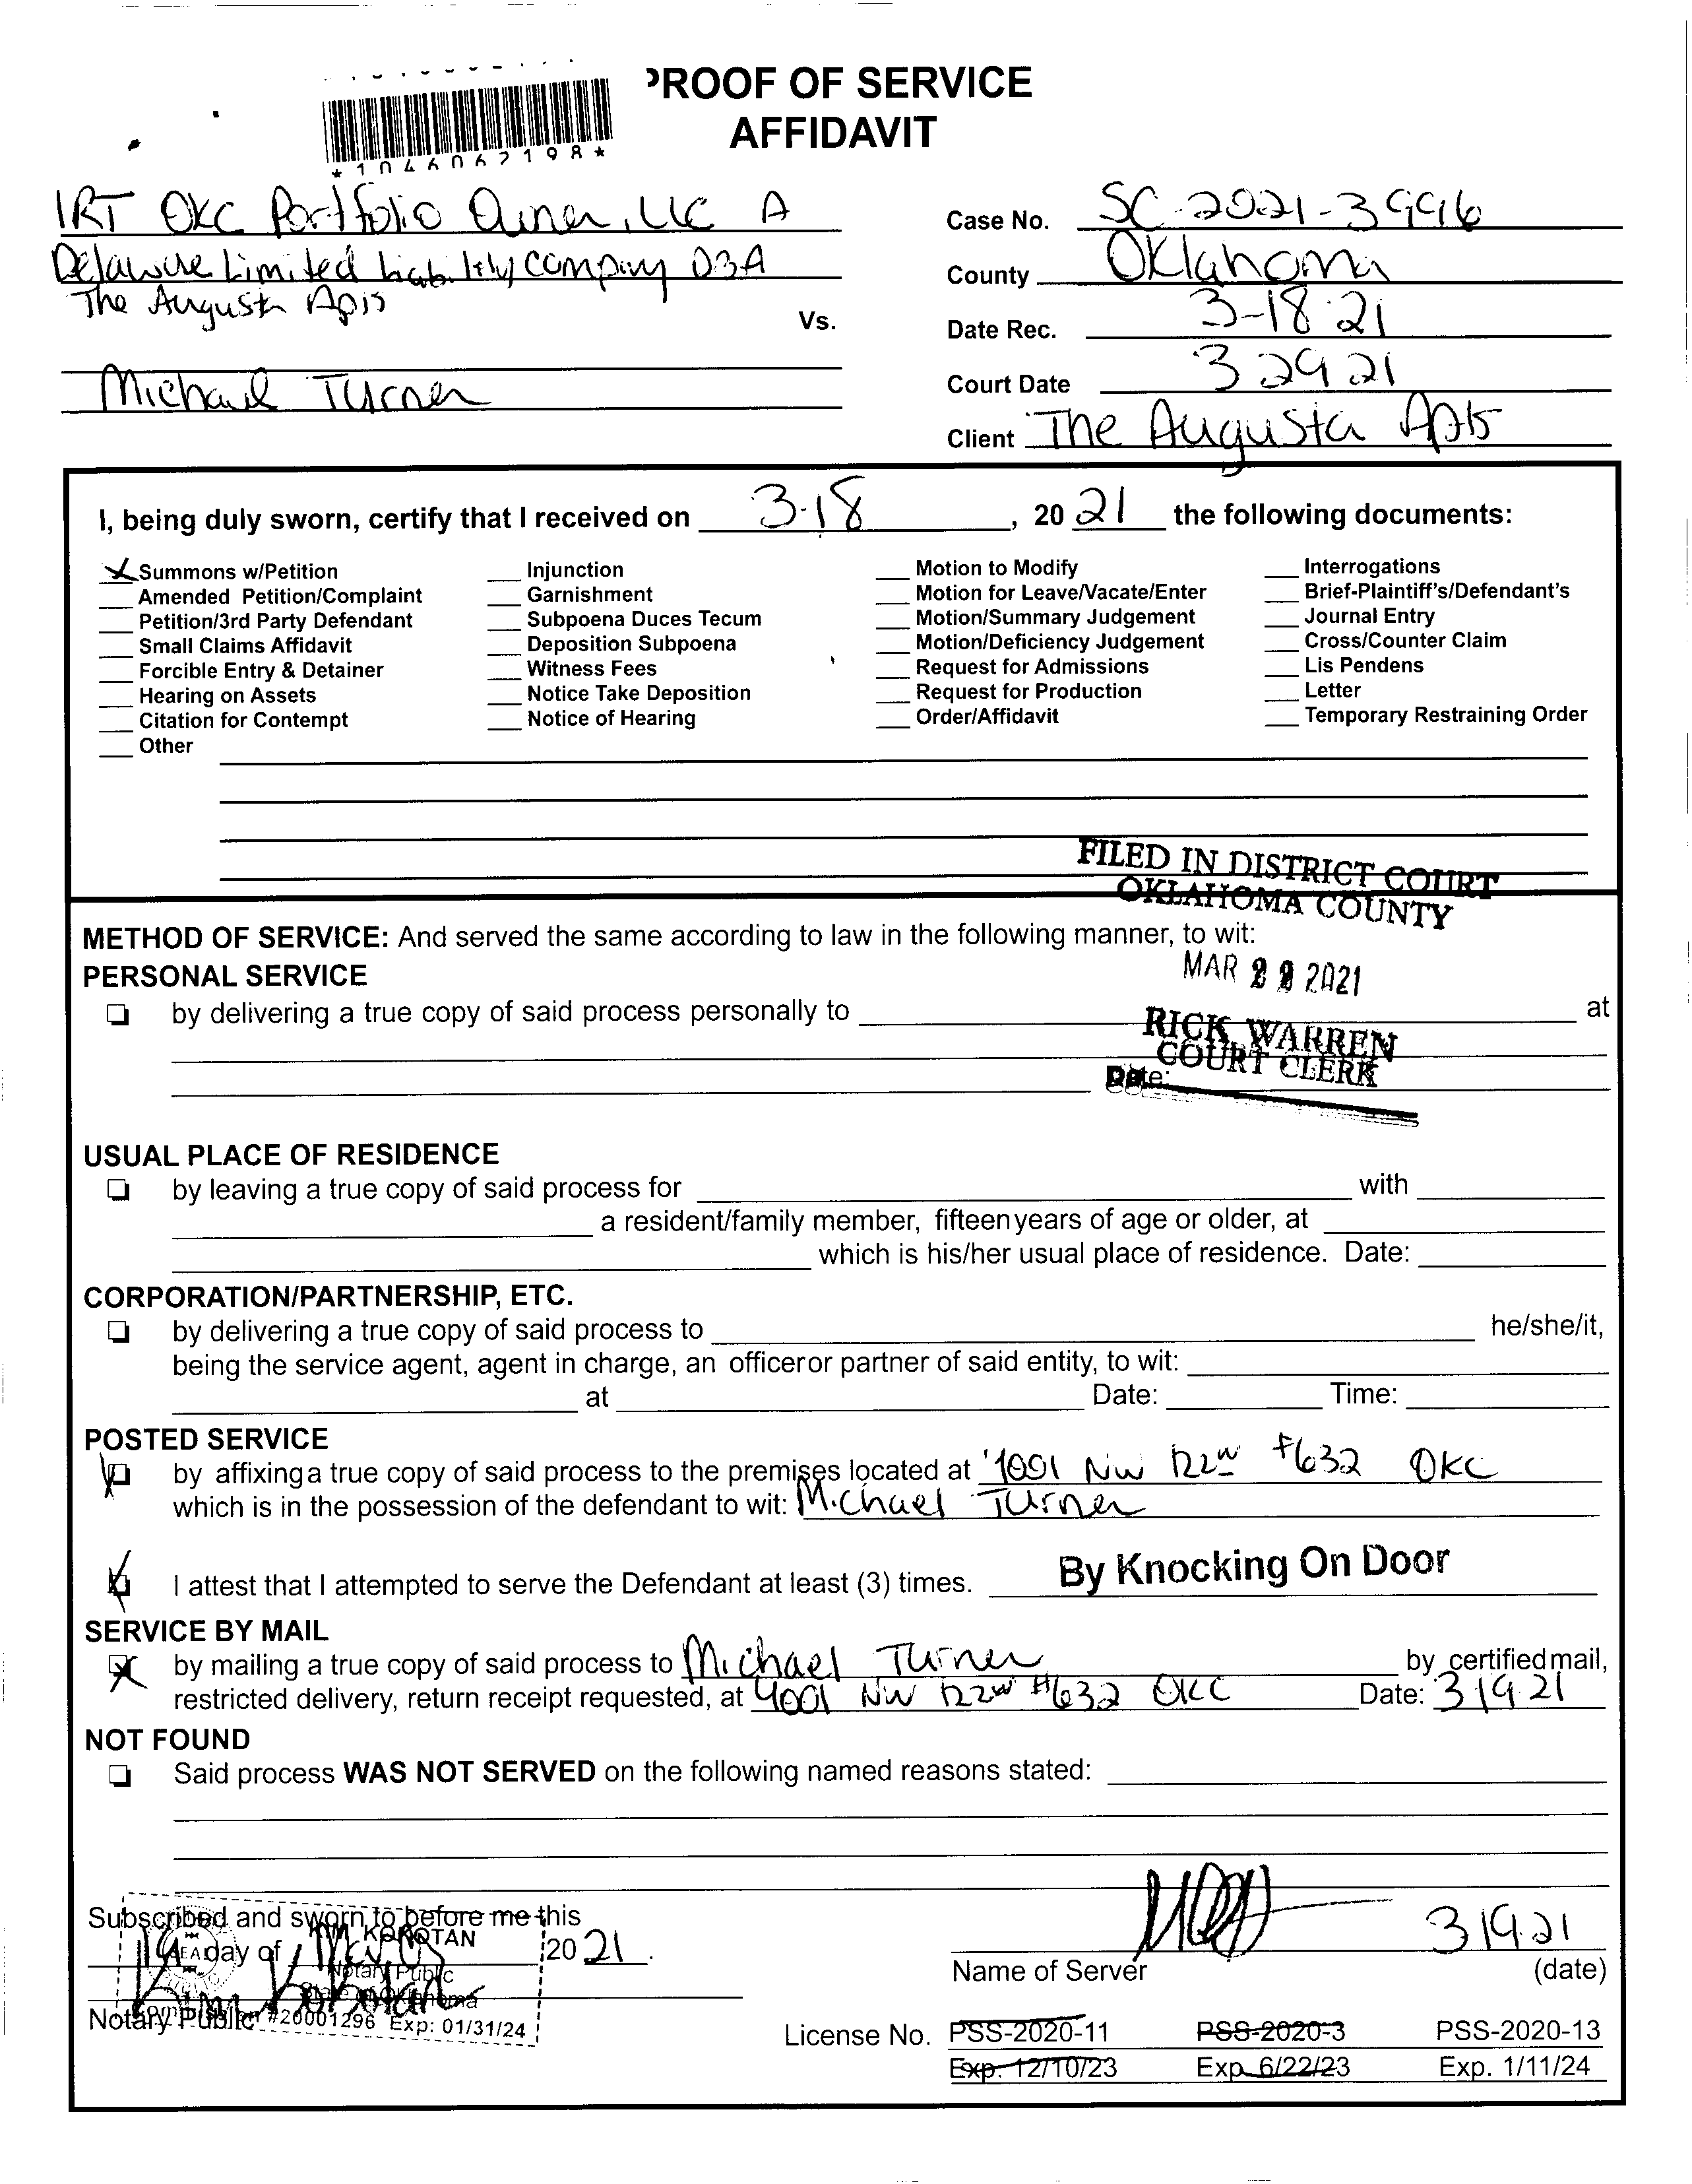 PROOF OF SERVICE
AFFIDAVIT
IRT OKC Portfolio Owner, LLC A
Delaware Limited Liability Company DBA
The Augusta Apts
Vs.
Michael Turner
Case No. SC-2021-3996
County Oklahoma
Date Rec. 3-18-21
Court Date 3 29 21
Client The Augusta Apts
I, being duly sworn, certify that I received on 3-18, 20 21 the following documents:
Summons w/Petition
Amended Petition/Complaint
Petition/3rd Party Defendant
Small Claims Affidavit
Forcible Entry & Detainer
Hearing on Assets
Citation for Contempt
Other
Injunction
Garnishment
Subpoena Duces Tecum
Deposition Subpoena
Witness Fees
Notice Take Deposition
Notice of Hearing
Motion to Modify
Motion for Leave/Vacate/Enter
Motion/Summary Judgement
Motion/Deficiency Judgement
Request for Admissions
Request for Production
Order/Affidavit
Interrogations
Brief-Plaintiff's/Defendant's
Journal Entry
Cross/Counter Claim
Lis Pendens
Letter
Temporary Restraining Order
FILED IN DISTRICT COURT
OKLAHOMA COUNTY
METHOD OF SERVICE: And served the same according to law in the following manner, to wit:
MAR 2021
PERSONAL SERVICE
by delivering a true copy of said process personally to at
RICK WARREN
COURT CLERK
Date:
USUAL PLACE OF RESIDENCE
by leaving a true copy of said process for with
a resident/family member, fifteen years of age or older, at
which is his/her usual place of residence. Date:
CORPORATION/PARTNERSHIP, ETC.
by delivering a true copy of said process to he/she/it,
being the service agent, agent in charge, an officer or partner of said entity, to wit:
at Date: Time:
POSTED SERVICE
by affixing a true copy of said process to the premises located at 4001 NW 122nd #632 OKC
which is in the possession of the defendant to wit: Michael Turner
I attest that I attempted to serve the Defendant at least (3) times. By Knocking On Door
SERVICE BY MAIL
by mailing a true copy of said process to Michael Turner by certified mail,
restricted delivery, return receipt requested, at 4001 NW 122nd #632 OKC Date: 3 19 21
NOT FOUND
Said process WAS NOT SERVED on the following named reasons stated:
Subscribed and sworn to before me this
19 day of March 20 21.
KIM KOROTAN
Notary Public
State of Oklahoma
Commission #20001296 Exp: 01/31/24
Kim Korotan
Notary Public
3 19 21
Name of Server (date)
License No. PSS-2020-11 PSS-2020-3 PSS-2020-13
Exp. 12/10/23 Exp. 6/22/23 Exp. 1/11/24